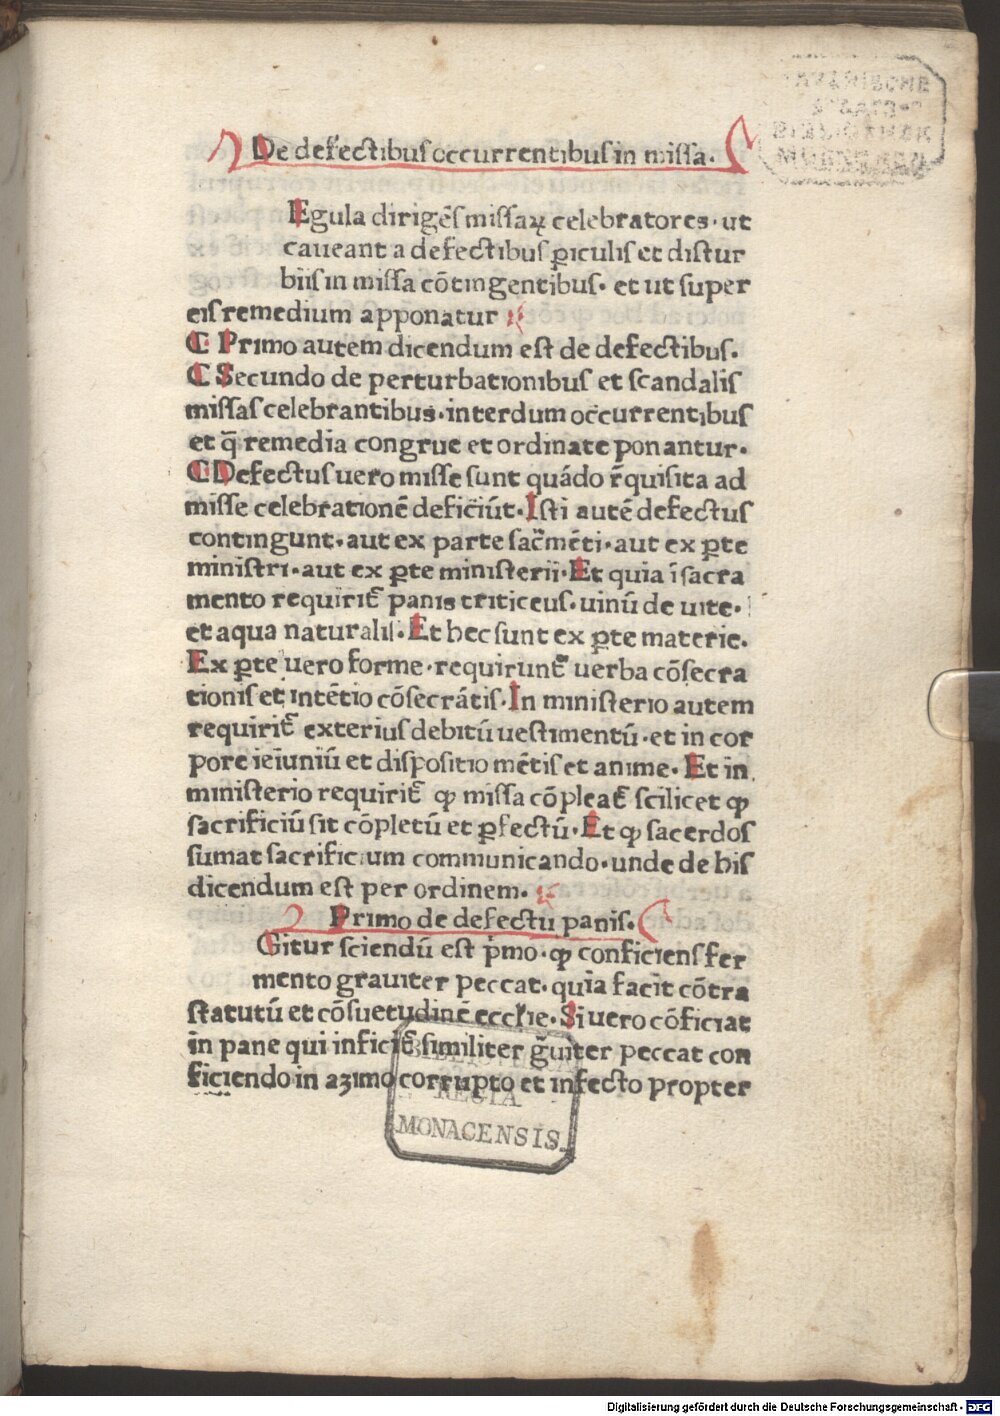 De defectibus occurrentibus in missa.
Egula dirigēs missaꝝ celebratores· ut
caueant a defectibus ꝑiculis et distur
biis in missa cōtingentibus· et ut super
eis remedium apponatur
C Primo autem dicendum est de defectibus.
C Secundo de perturbationibus et scandalis
missas celebrantibus·interdum occurrentibus
et q̄ remedia congrue et ordinate ponantur.
C Defectus uero misse sunt quādo r̄quisita ad
misse celebrationē deficiūt. Isti autē defectus
contingunt·aut ex parte sac̄mēti·aut ex ꝑte
ministri·aut ex ꝑte ministerii·Et quia ī sacra
mento requirit̄ panis triticeus·uinū de uite·
et aqua naturalis. Et hec sunt ex ꝑte materie.
Ex ꝑte uero forme·requirunt̄ uerba cōsecra
tionis et intētio cōsecrātis. In ministerio autem
requirit̄ exterius debitū uestimentū·et in cor
pore ieiuniū et dispositio mētis et anime. Et in
ministerio requirit̄ ꝙ missa cōpleat̄ scilicet ꝙ
sacrificiū sit cōpletū et ꝑfectū. Et ꝙ sacerdos
sumat sacrificium communicando·unde de his
dicendum est per ordinem.
Primo de defectu panis.
Gitur sciendū est p̄mo·ꝙ conficiens fer
mento grauiter peccat·quia facit cōtra
statutū et cōsuetudinē eccl̄ie·Si uero cōficiat
in pane qui inficit̄ similiter g̃uiter peccat con
ficiendo in azimo corrupto et infecto propter
BIBLIOTHECA
REGIA
MONACENSIS
BAYERISCHE
STAATS-
BIBLIOTHEK
MUENCHEN
Digitalisierung gefördert durch die Deutsche Forschungsgemeinschaft - DFG